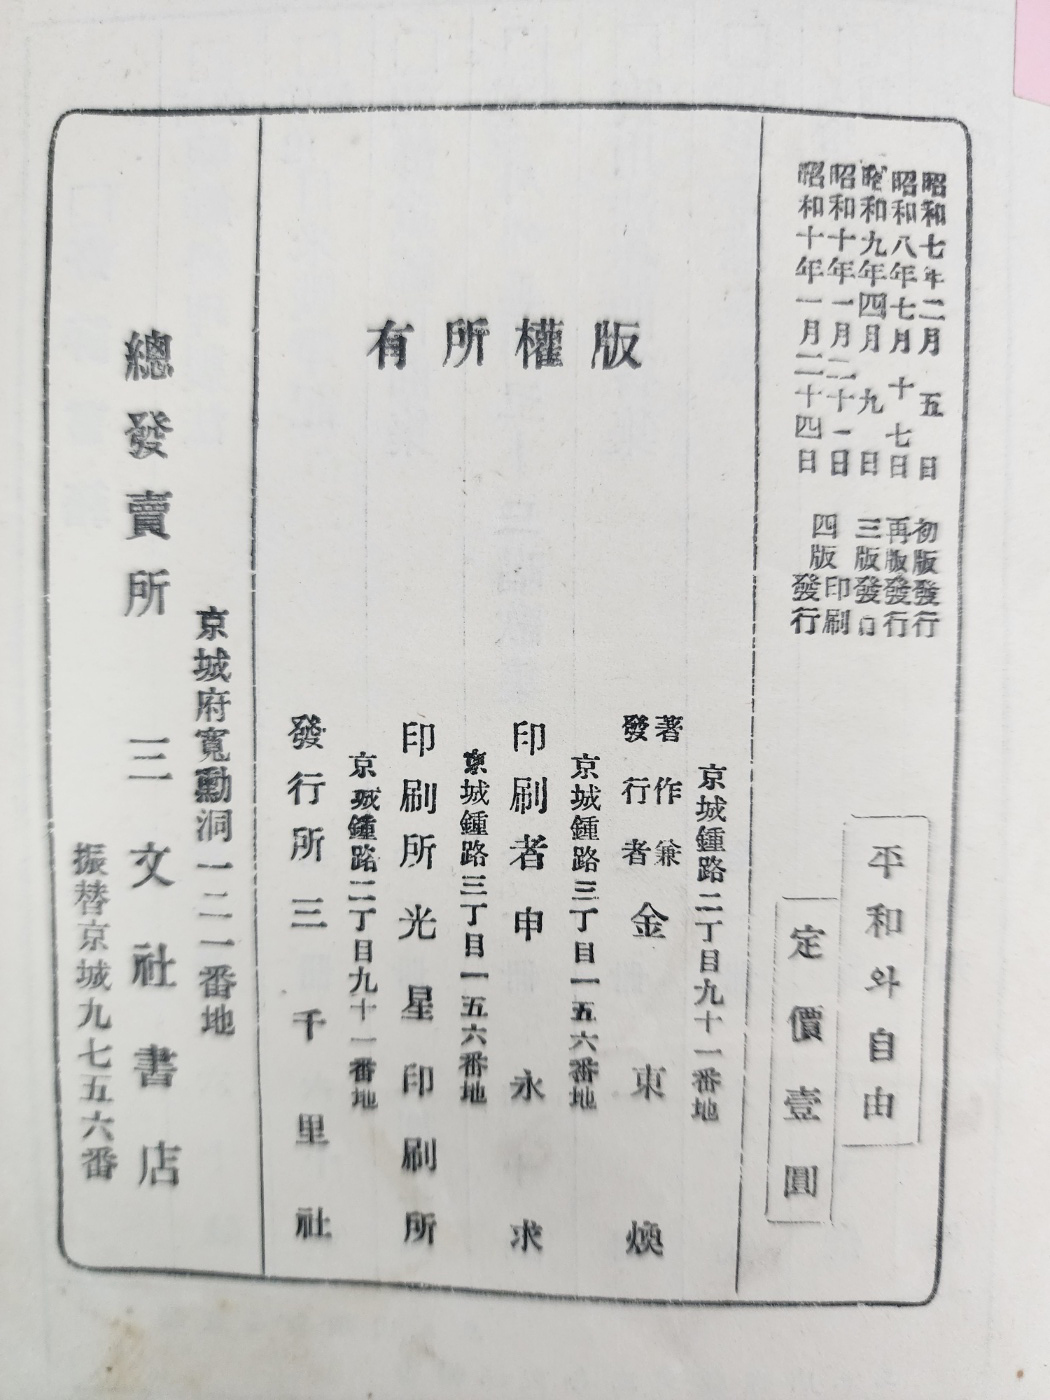 昭和七年二月五日 初版發行
昭和八年七月十七日 再版發行
昭和九年四月九日 三版發行
昭和十年一月二十一日 四版印刷
昭和十年一月二十四日 四版發行
平和와自由
定價壹圓
版權所有
京城鍾路二丁目九十一番地
著作兼
發行者 金東煥
京城鍾路三丁目一五六番地
印刷者 申永求
京城鍾路三丁目一五六番地
印刷所 光星印刷所
京城鍾路二丁目九十一番地
發行所 三千里社
京城府寬勳洞一二一番地
總發賣所 三文社書店
振替京城九七五六番